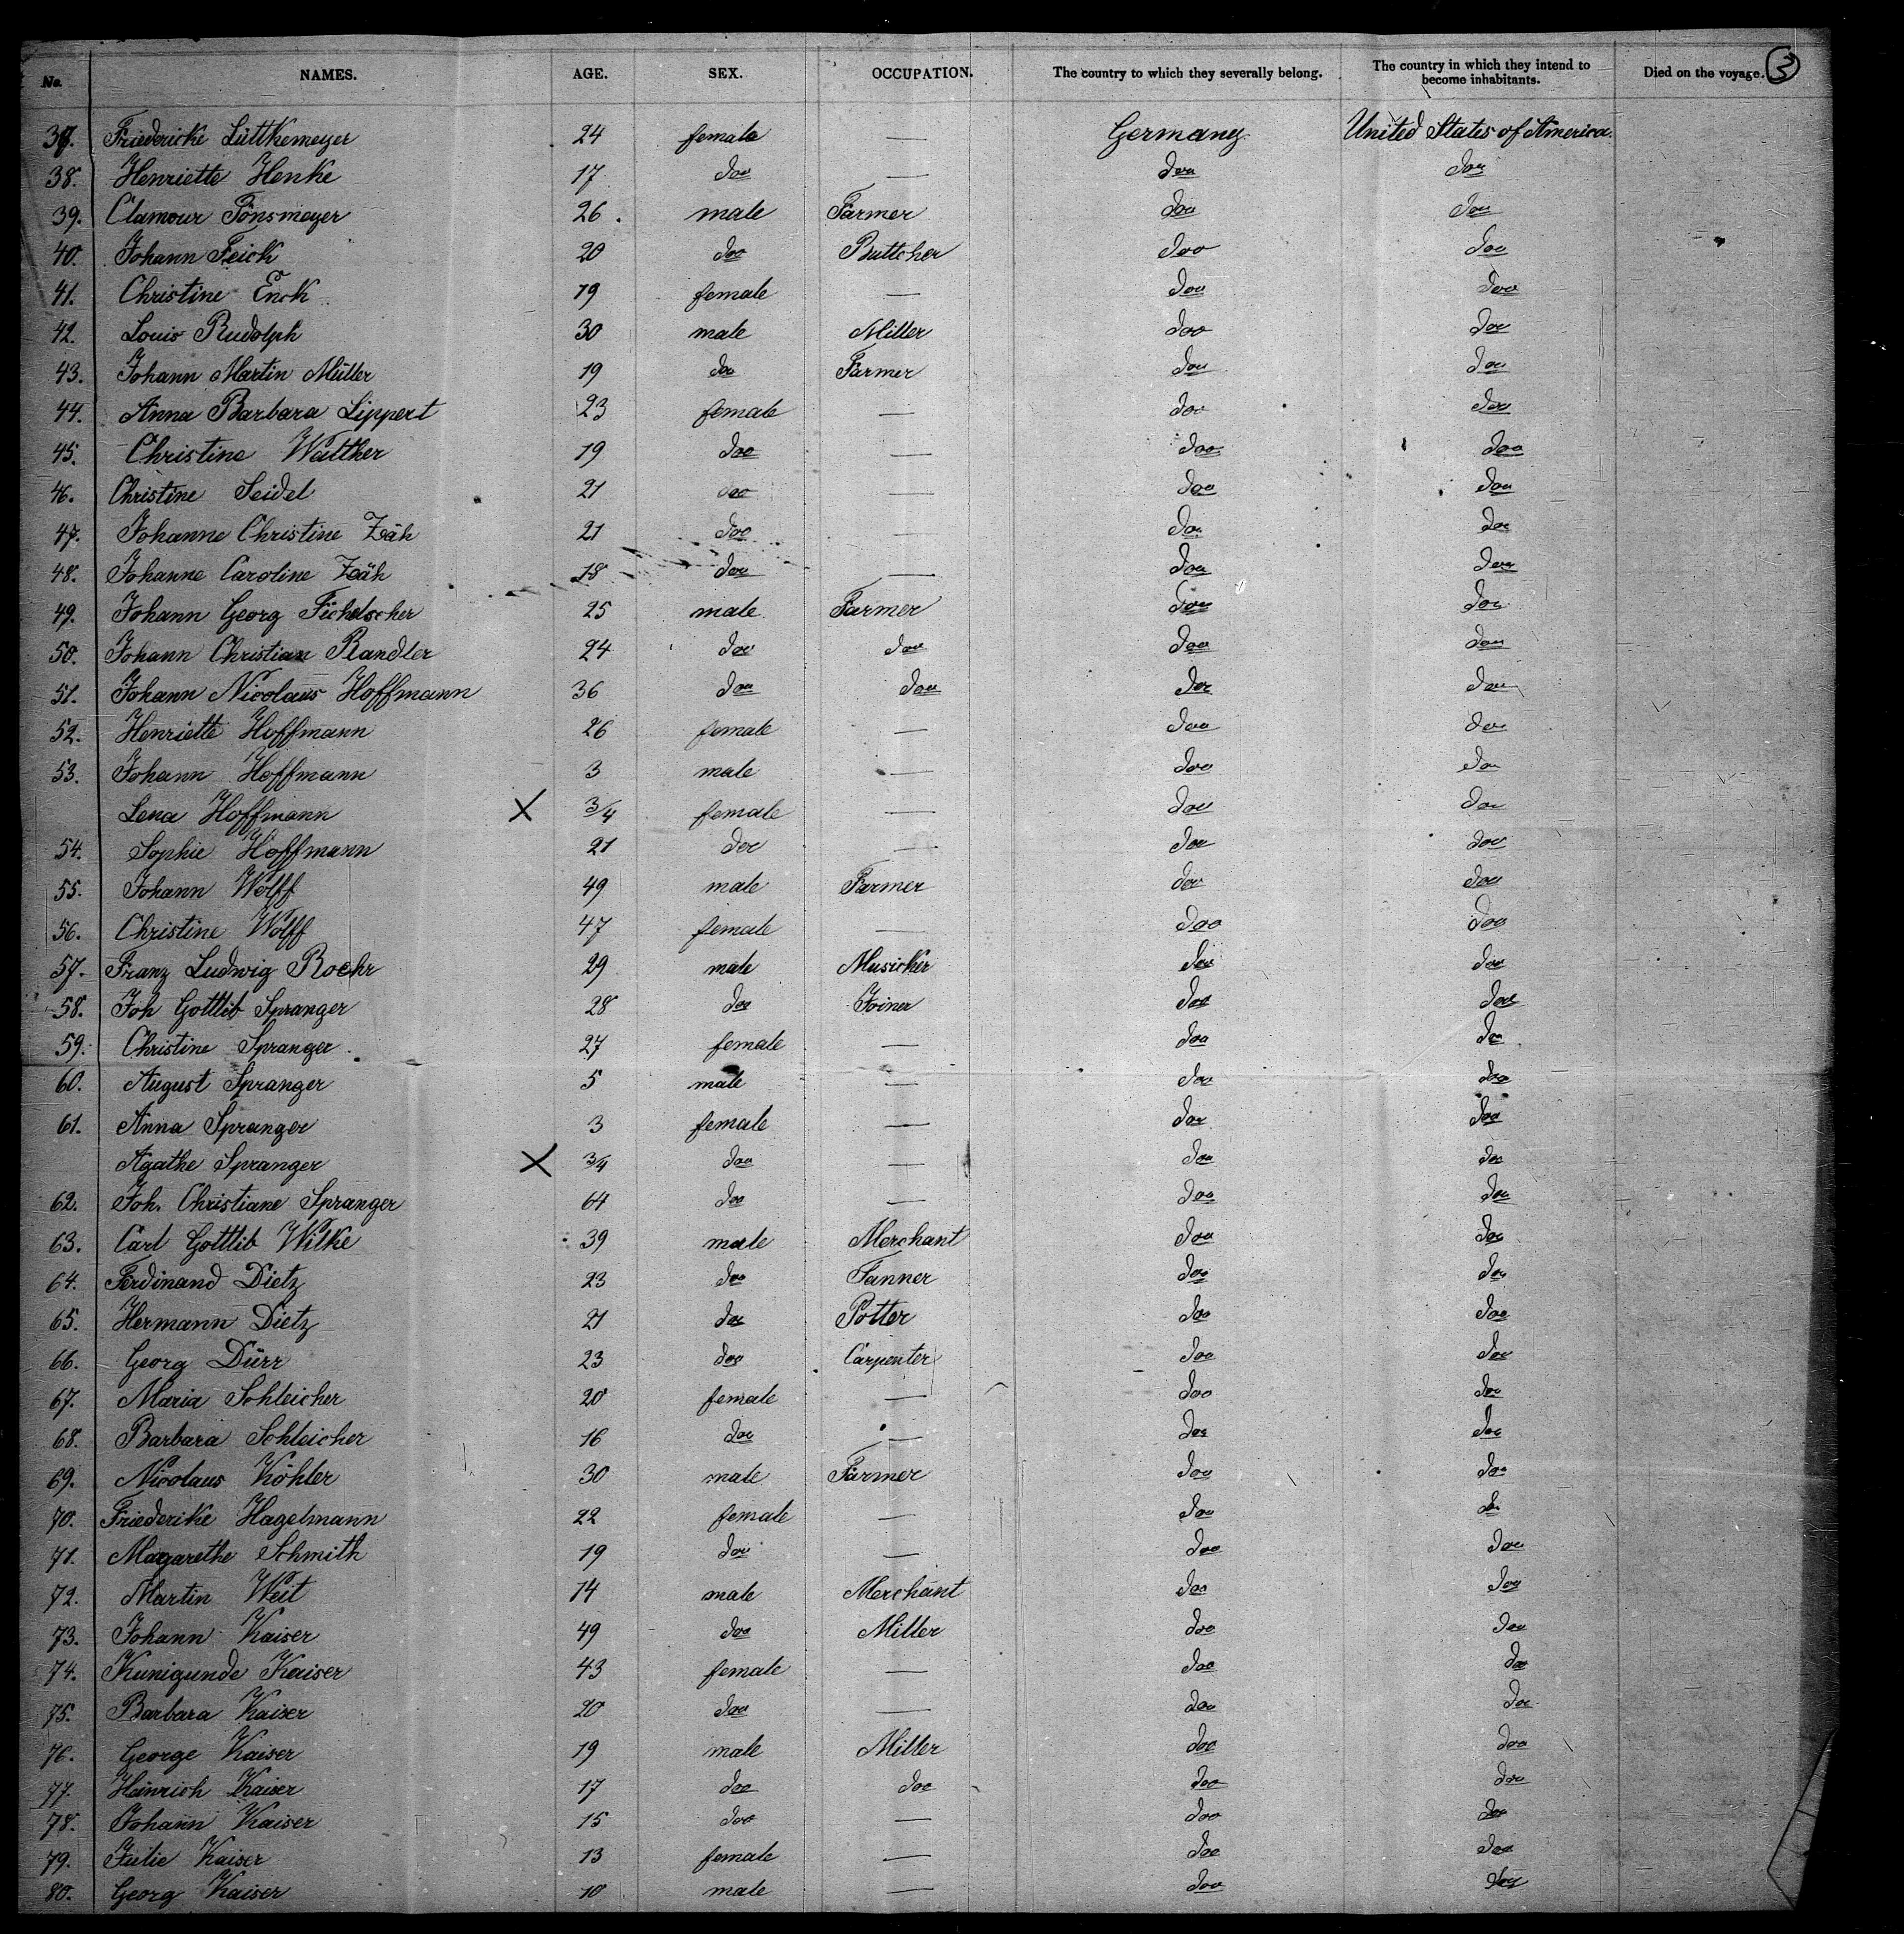 No. NAMES. AGE. SEX. OCCUPATION. The country to which they severally belong. The country in which they intend to become inhabitants. Died on the voyage. 3
37. Friedericke Lüttkemeyer 24 female — Germany United States of America.
38. Henriette Henke 17 do — do do
39. Clamour Pönsmeyer 26. male Farmer do do
40. Johann Feick 20 do Buttcher do do
41. Christine Enck 19 female — do do
42. Louis Rudolph 30 male Miller do do
43. Johann Martin Müller 19 do Farmer do do
44. Anna Barbara Lippert 23 female — do do
45. Christine Walther 19 do — do do
46. Christine Seidel 21 do — do do
47. Johanne Christine Zäh 21 do — do do
48. Johanne Caroline Zäh 18 do — do do
49. Johann Georg Fichelscher 25 male Farmer do do
50. Johann Christian Randler 24 do do do do
51. Johann Nicolaus Hoffmann 36 do do do do
52. Henriette Hoffmann 26 female — do do
53. Johann Hoffmann 3 male — do do
Lena Hoffmann X 3/4 female — do do
54. Sophie Hoffmann 21 do — do do
55. Johann Wolff 49 male Farmer do do
56. Christine Wolff 47 female — do do
57. Franz Ludwig Roehr 29 male Musicker do do
58. Joh Gottlib Spranger 28 do Joiner do do
59. Christine Spranger 27 female — do do
60. August Spranger 5 male — do do
61. Anna Spranger 3 female — do do
Agathe Spranger X 3/4 do — do do
62. Joh. Christiane Spranger 64 do — do do
63. Carl Gottlib Wilke 39 male Merchant do do
64. Ferdinand Dietz 23 do Tanner do do
65. Hermann Dietz 21 do Potter do do
66. Georg Dürr 23 do Carpenter do do
67. Maria Schleicher 20 female — do do
68. Barbara Schleicher 16 do — do do
69. Nicolaus Köhler 30 male Farmer do do
70. Friederike Hagelmann 22 female — do do
71. Magarethe Schmith 19 do — do do
72. Martin Weit 14 male Merchant do do
73. Johann Kaiser 49 do Miller do do
74. Kunigunde Kaiser 43 female — do do
75. Barbara Kaiser 20 do — do do
76. George Kaiser 19 male Miller do do
77. Heinrich Kaiser 17 do do do do
78. Johann Kaiser 15 do — do do
79. Julie Kaiser 13 female — do do
80. Georg Kaiser 10 male — do do